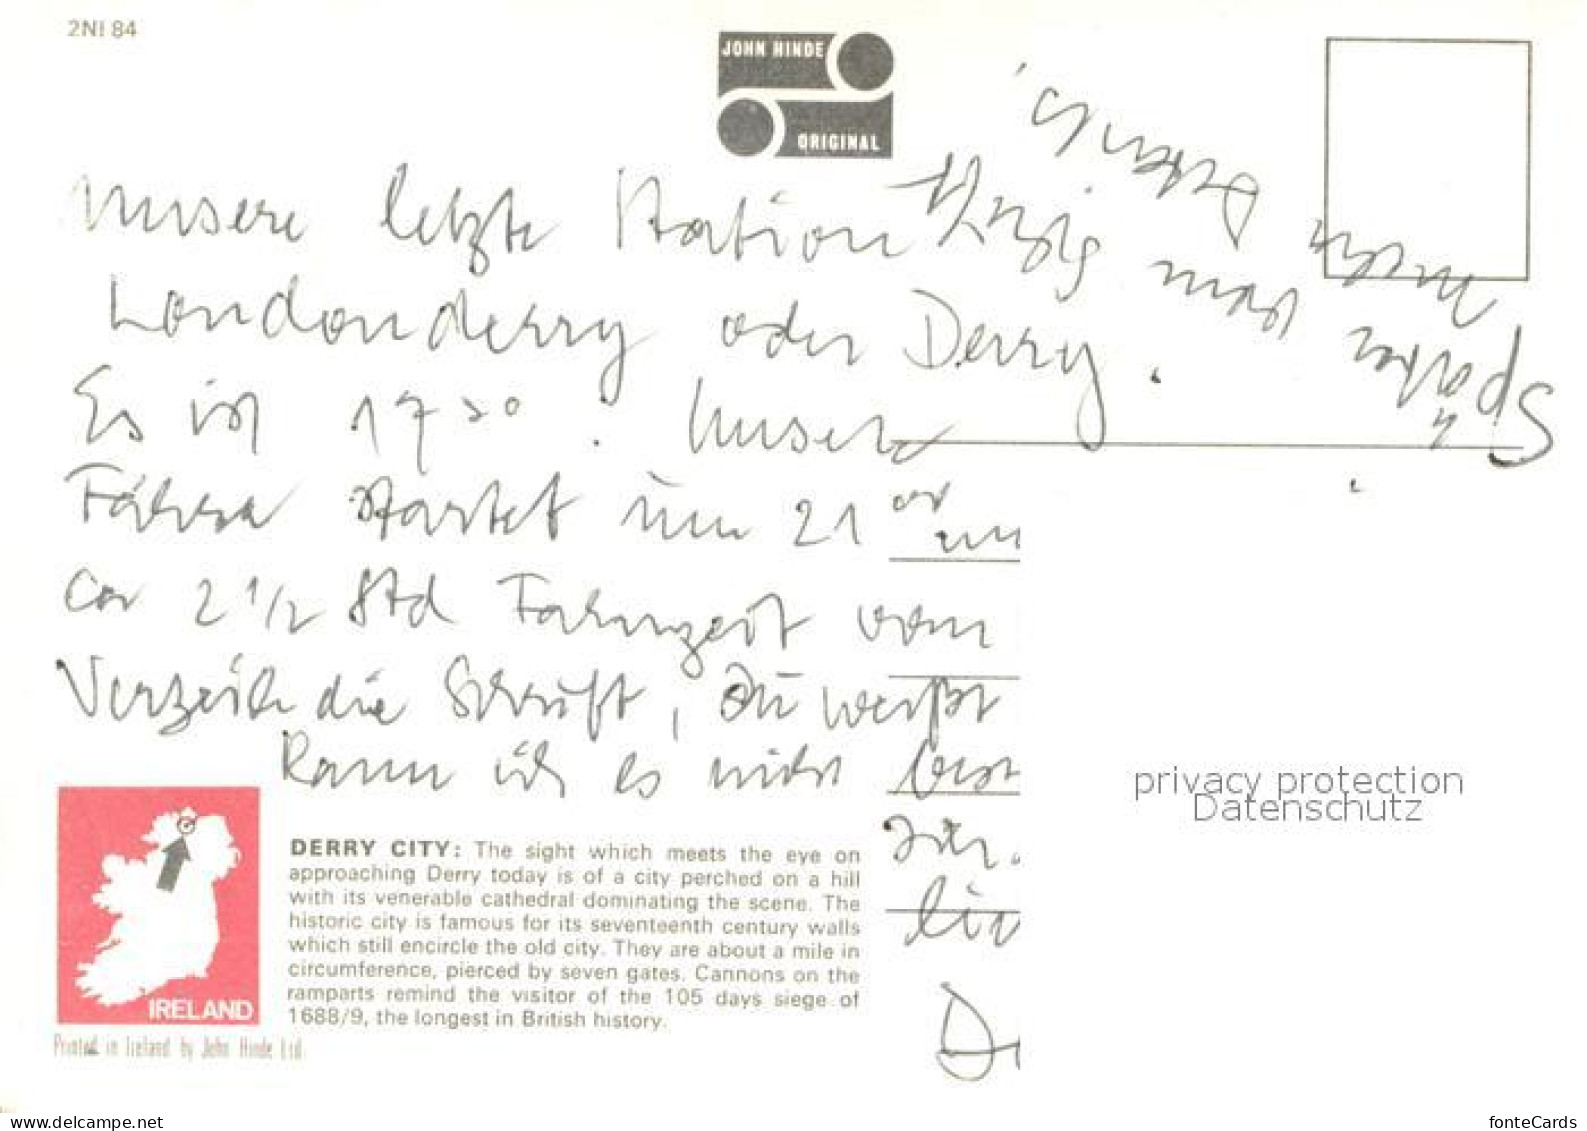 2NI 84
JOHN HINDE
ORIGINAL
Unsere letzte Station
Londonderry oder Derry.
Es ist 17³⁰. Unsere
Fähre startet um 21
ca 2 1/2 Std Fahrzeit von
Verzeih die Schrift, Du weißt
Kann ich es nicht
Später von
DERRY CITY: The sight which meets the eye on
approaching Derry today is of a city perched on a hill
with its venerable cathedral dominating the scene. The
historic city is famous for its seventeenth century walls
which still encircle the old city. They are about a mile in
circumference, pierced by seven gates. Cannons on the
ramparts remind the visitor of the 105 days siege of
1688/9, the longest in British history.
IRELAND
Printed in Ireland by John Hinde Ltd.
privacy protection
Datenschutz
www.delcampe.net
fonteCards